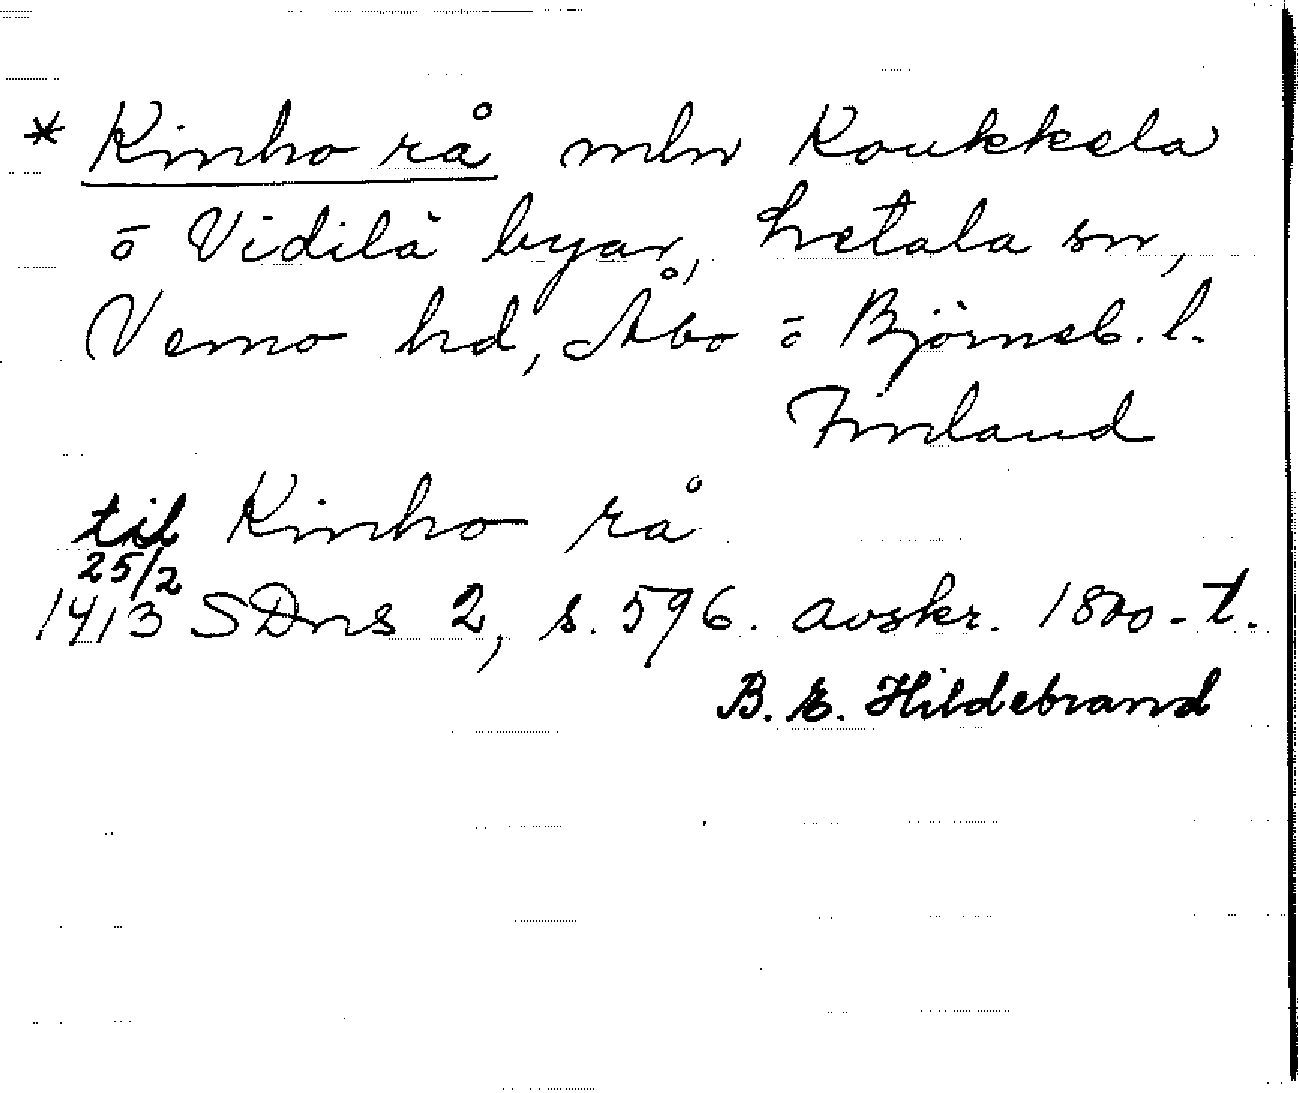 * Kinho rå mln Koukkela
ō Vidilä byar, Letala sn,
Vemo hd, Åbo ō Björneb. l.
Finland
til Kinho rå
25/2
1413 SDns 2, s. 596. avskr. 1800-t.
B. E. Hildebrand